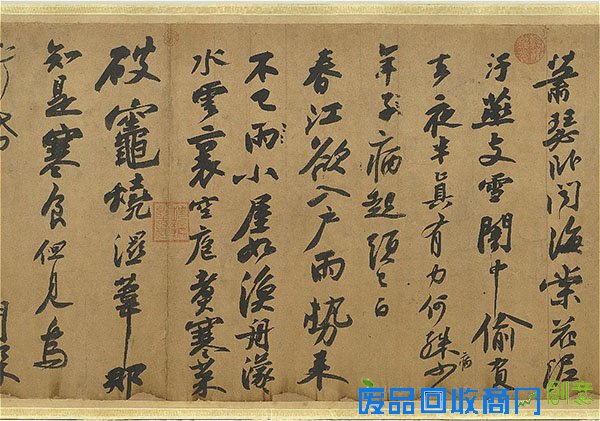 萧瑟卧闻海棠花泥
汙燕支雪闇中偷負
去夜半真有力何殊少
年子病起頭已白
春江欲入户雨勢来
不已雨小屋如漁舟濛
水雲裏空庖煮寒菜
破竈燒濕葦那
知是寒食但見烏
废品回收商门
创意